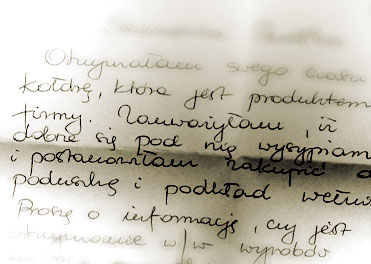 Szanowni Państwo
Otrzymałam swego czasu
kołdrę, która jest produktem
firmy. Zauważyłam, iż
dobrze się pod nią wysypiam
i postanowiłam zakupić
poduszkę i podkład
Proszę o informację, czy jest
otrzymanie w/w wyrobów